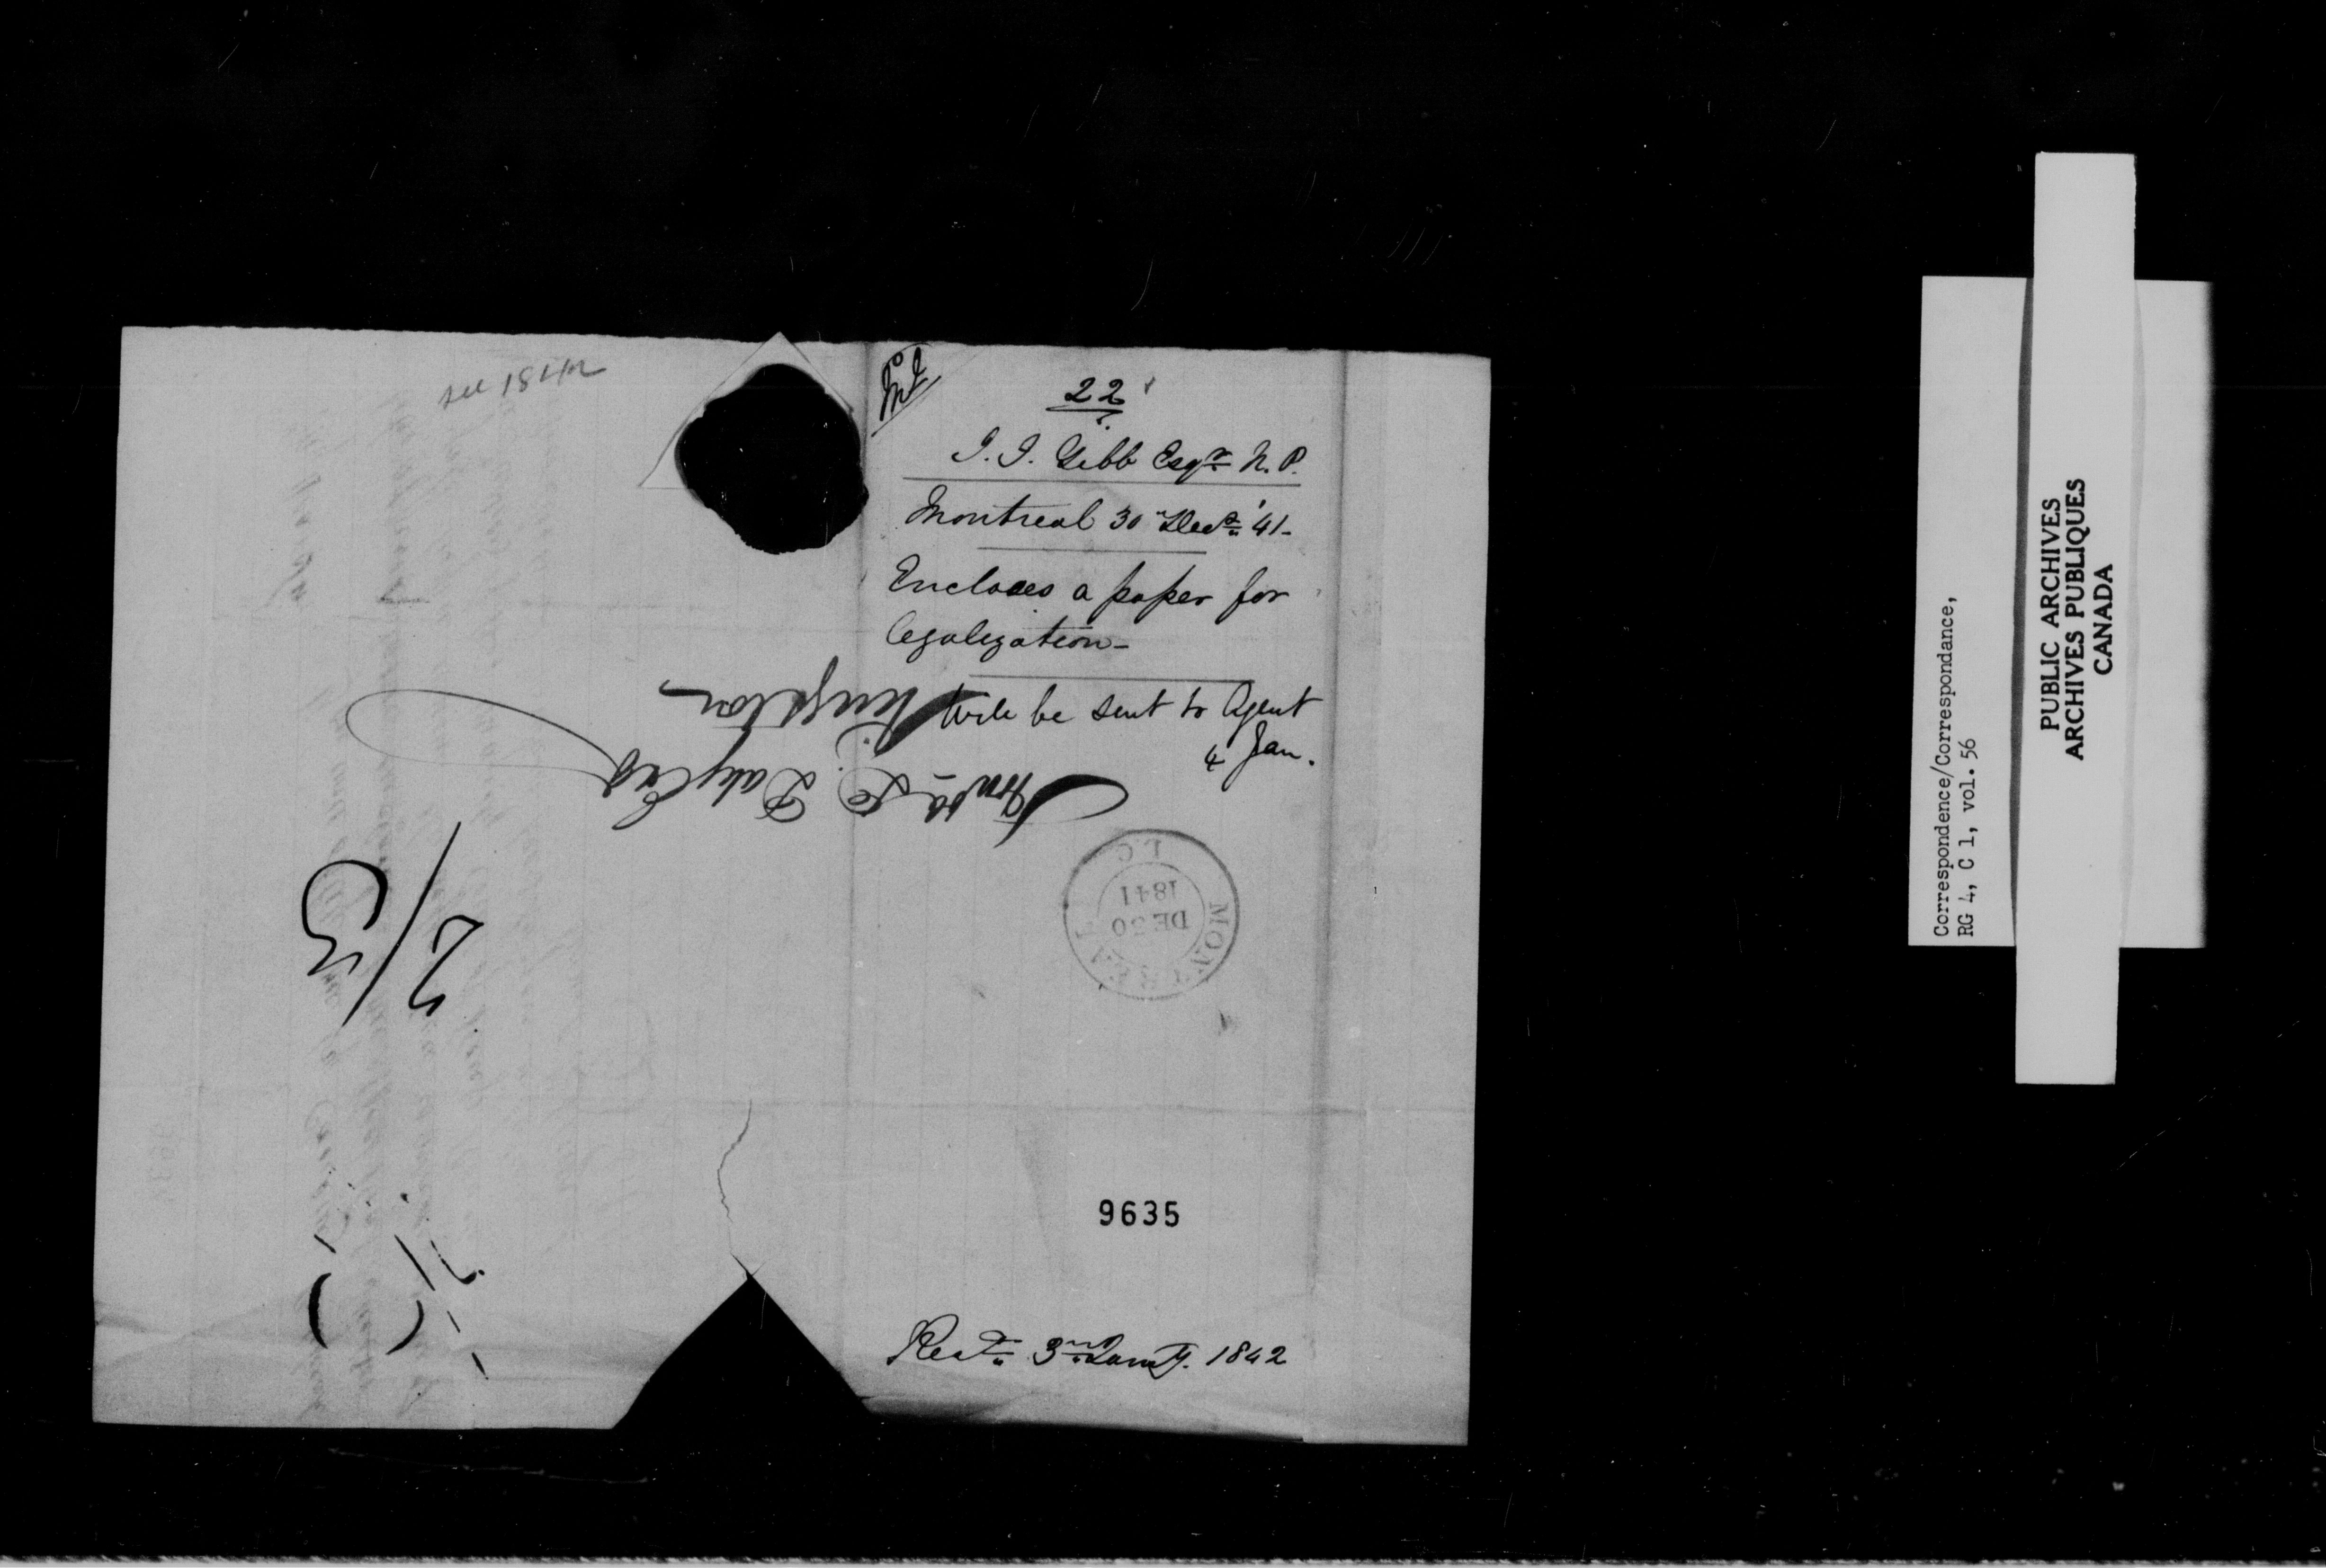 see 1842
22
I. I. Gibb Esqr N. P.
Montreal 30 Decr '41-
Encloses a paper for
legalization-
Will be sent to Agent
4 Jan.
Honble D. Daly Esq
Kingston
MONTREAL
DE 30
1841
L.C
9635
Recd 3rd Jany. 1842
Correspondence/Correspondance,
RG 4, C 1, vol. 56
PUBLIC ARCHIVES
ARCHIVES PUBLIQUES
CANADA